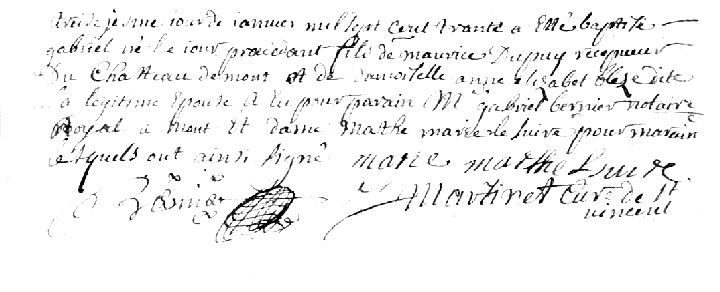 jour de janvier mil sept cent trante a Etté baptisé
gabriel né le jour precedant fils de maurice Dupuy
Du Chatteau de mont et de damoiselle anne elizabet
Sa legitime Epouse a Eu pour parain Mr gabriel bernier notaire
Royal a mont Et dame Mathe marie le Suire pour maraine
lesquels ont ainsi signé marie mathe Suire
Martinet Curé de St
vincent